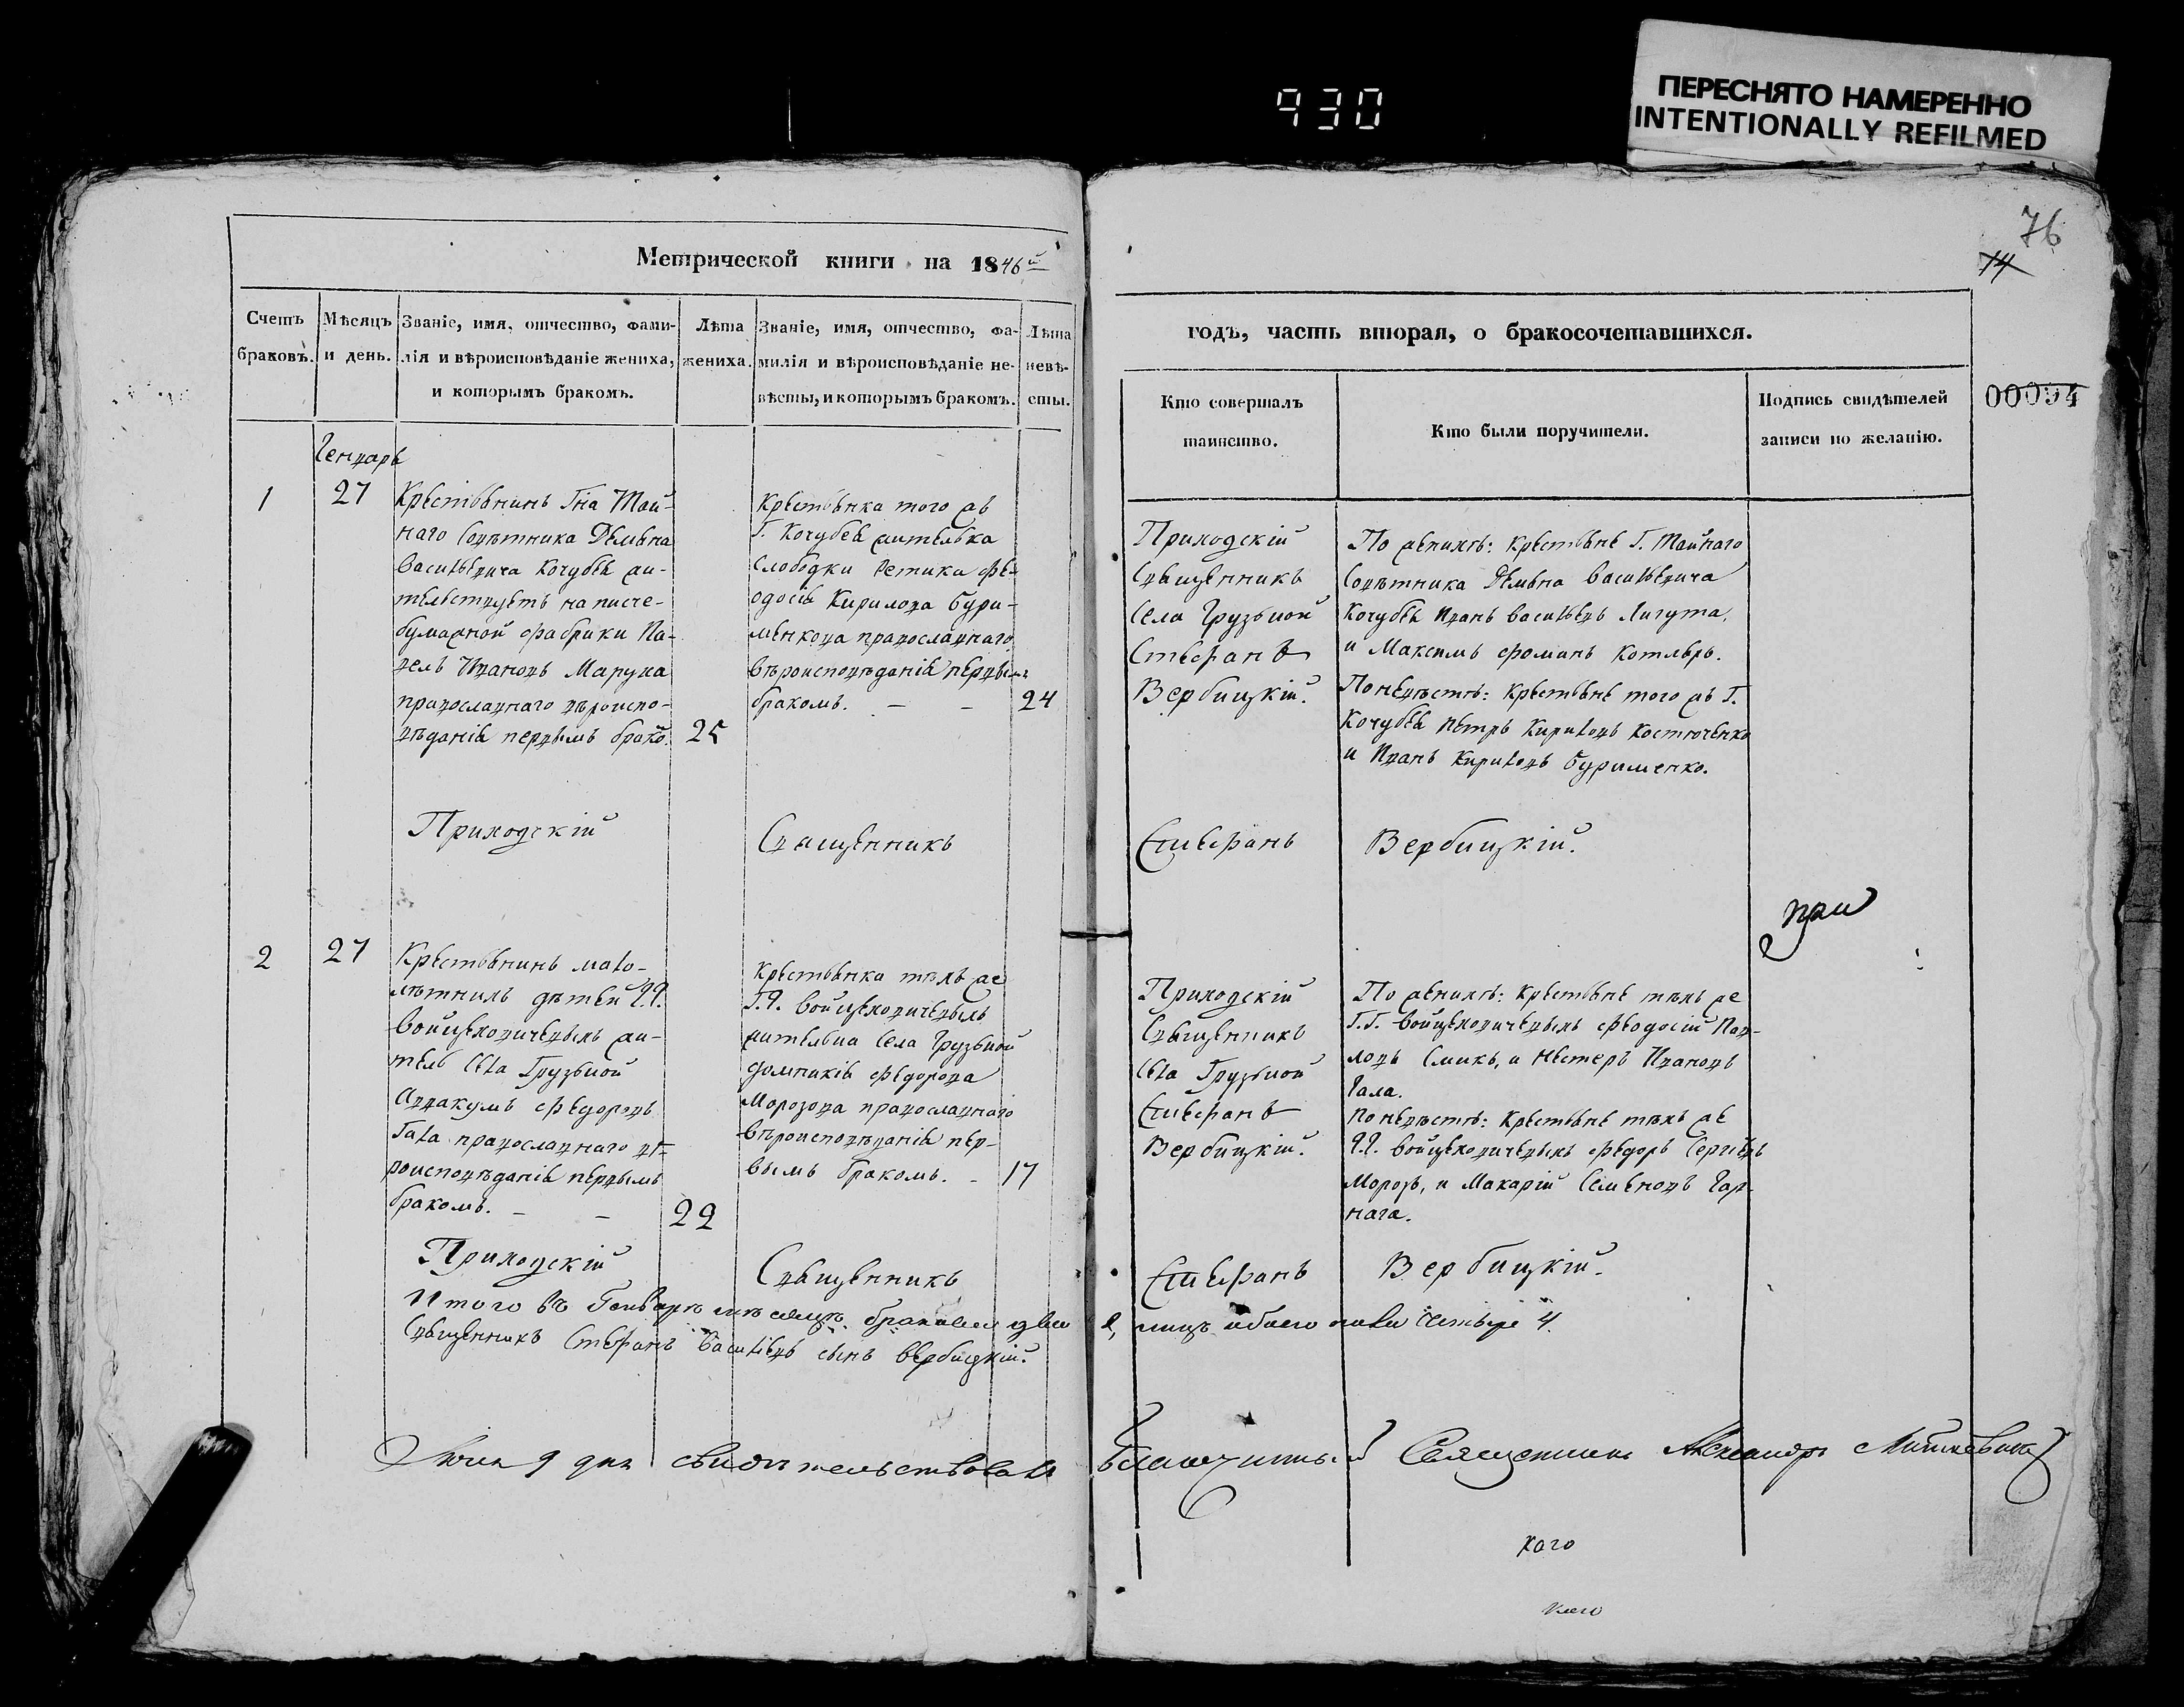 930
ПЕРЕСНЯТО НАМЕРЕННО
INTENTIONALLY REFILMED
76
14
00094
Метрической книги на 1846й
годъ, часть вторая, о бракосочетавшихся.
Счетъ
браковъ.
Мѣсяцъ
и день.
Званіе, имя, отчество, фами-
лія и вѣроисповѣданіе жениха,
и которымъ бракомъ.
Лѣта
жениха.
Званіе, имя, отчество, фа-
милія и вѣроисповѣданіе не-
вѣсты, и которымъ бракомъ.
Лѣта
невѣ-
сты.
Кто совершалъ
таинство.
Кто были поручители.
Подпись свидѣтелей
записи по желанію.
Генварь
1
27
Крестьянинъ Гна Тай-
наго Совѣтника Демьяна
Васильевича Кочубея жи-
тельствуетъ на писче-
бумажной фабрики Па-
велъ Ивановъ Марука
православнаго вѣроиспо-
вѣданія первымъ брако.
25
Крестьянка того жъ
Г. Кочубея жителька
Слободки Ѳе-
одосія Кирилова Бури-
менкова православнаго
вѣроисповѣданія первымъ
бракомъ. — —
24
Приходскій
Священникъ
Села Грузской
Стефанъ
Вербицкій.
По женихѣ: Крестьяне Г. Тайнаго
Совѣтника Демьяна Васильевича
Кочубея Иванъ Васильевъ Лигута,
и Максимъ Фоминъ Котляръ.
По невѣстѣ: Крестьяне того жъ Г.
Кочубея Петръ Кириловъ Костюченко
и Иванъ Кириловъ Бурименко.
Приходскій Священникъ Стефанъ Вербицкій.
2
27
Крестьянинъ мало-
лѣтнихъ дѣтей Г.Г.
Войцеховичевыхъ жи-
тель Села Грузской
Аввакумъ Федоровъ
Гала православнаго вѣ-
роисповѣданія первымъ
бракомъ. — —
22
Крестьянка тѣхъ же
Г.Г. Войцеховичевыхъ
жителька Села Грузской
Домникія Федорова
Морозова православнаго
вѣроисповѣданія пер-
вымъ бракомъ. -
17
Приходскій
Священникъ
Села Грузской
Стефанъ
Вербицкій.
По женихѣ: Крестьяне тѣхъ же
Г.Г. Войцеховичевыхъ Феодосій Пав-
ловъ Смикъ, и Нестеръ Ивановъ
Гала.
По невѣстѣ: Крестьяне тѣхъ же
Г.Г. Войцеховичевыхъ Федоръ Сергіевъ
Морозъ, и Макарій Семеновъ Гар-
нага.
при
Приходскій Священникъ Стефанъ Вербицкій.
Итого въ Генварѣ мѣсяцѣ браковъ два 2, лицъ обоего пола четыре 4.
Священникъ Стефанъ Васильевъ сынъ Вербицкій.
Июня 9 дня свидѣтельствовалъ Благочинный Священникъ Александръ
каго